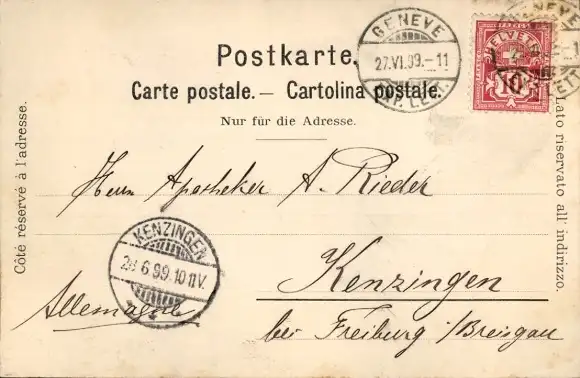 Postkarte.
Carte postale. — Cartolina postale.
Nur für die Adresse.
Côté réservé à l'adresse.
Lato riservato all' indirizzo.
GENEVE
27.VI.99.-11
HELVETIA
10
Herrn Apotheker A. Rieder
KENZINGEN
6.99.10-11V.
Kenzingen
Allemagne
bei Freiburg i/Breisgau